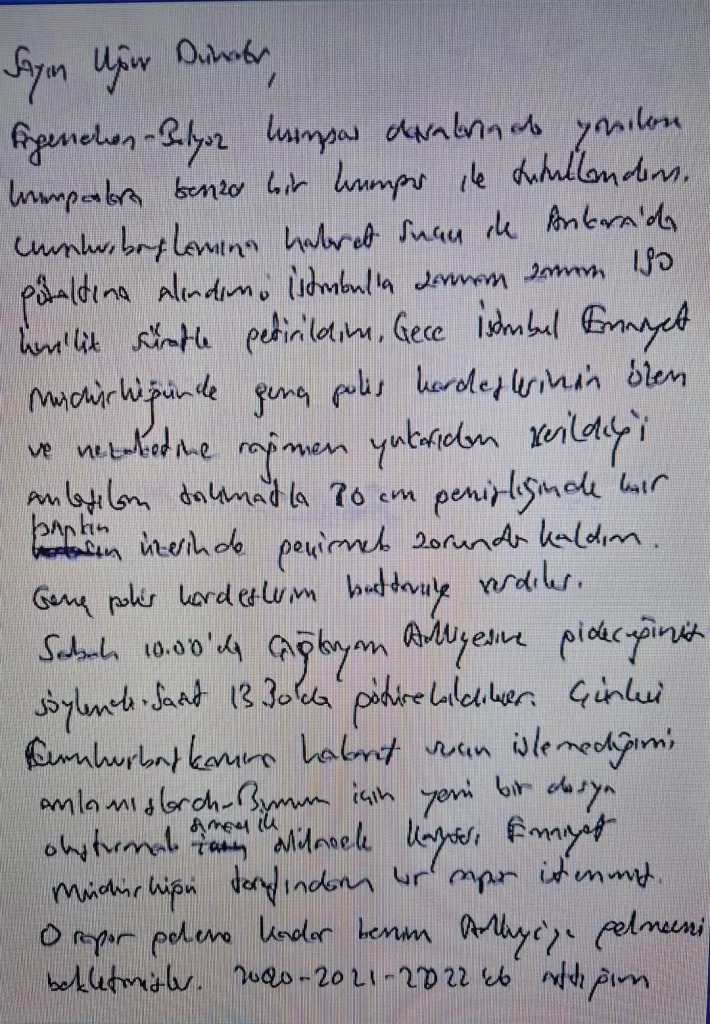 Sayın Uğur Dündar,
Ergenekon-Balyoz kumpas davalarında yapılan
kumpaslara benzer bir kumpas ile tutuklandım.
Cumhurbaşkanına hakaret suçu ile Ankara'da
gözaltına alındım. İstanbul'a zaman zaman 190
km'lik süratle getirildim. Gece İstanbul Emniyet
Müdürlüğünde genç polis kardeşlerimin özen
ve nezaketine rağmen yukarıdan verildiği
anlaşılan talimatla 70 cm genişliğinde bir
bankın üzerinde geçirmek zorunda kaldım.
Genç polis kardeşlerim battaniye verdiler.
Sabah 10.00'da Çağlayan Adliyesine gideceğimiz
söylendi. Saat 13 30'da götürebildiler. Çünkü
Cumhurbaşkanına hakaret suçu işlemediğimi
anlamışlardı. Bunun için yeni bir dosya
oluşturmak amacı ile Kayseri Emniyet
Müdürlüğü tarafından bir rapor istenmiş.
O rapor gelene kadar benim Adliyeye gelmemi
bekletmişler. 2020-2021-2022 de attığım